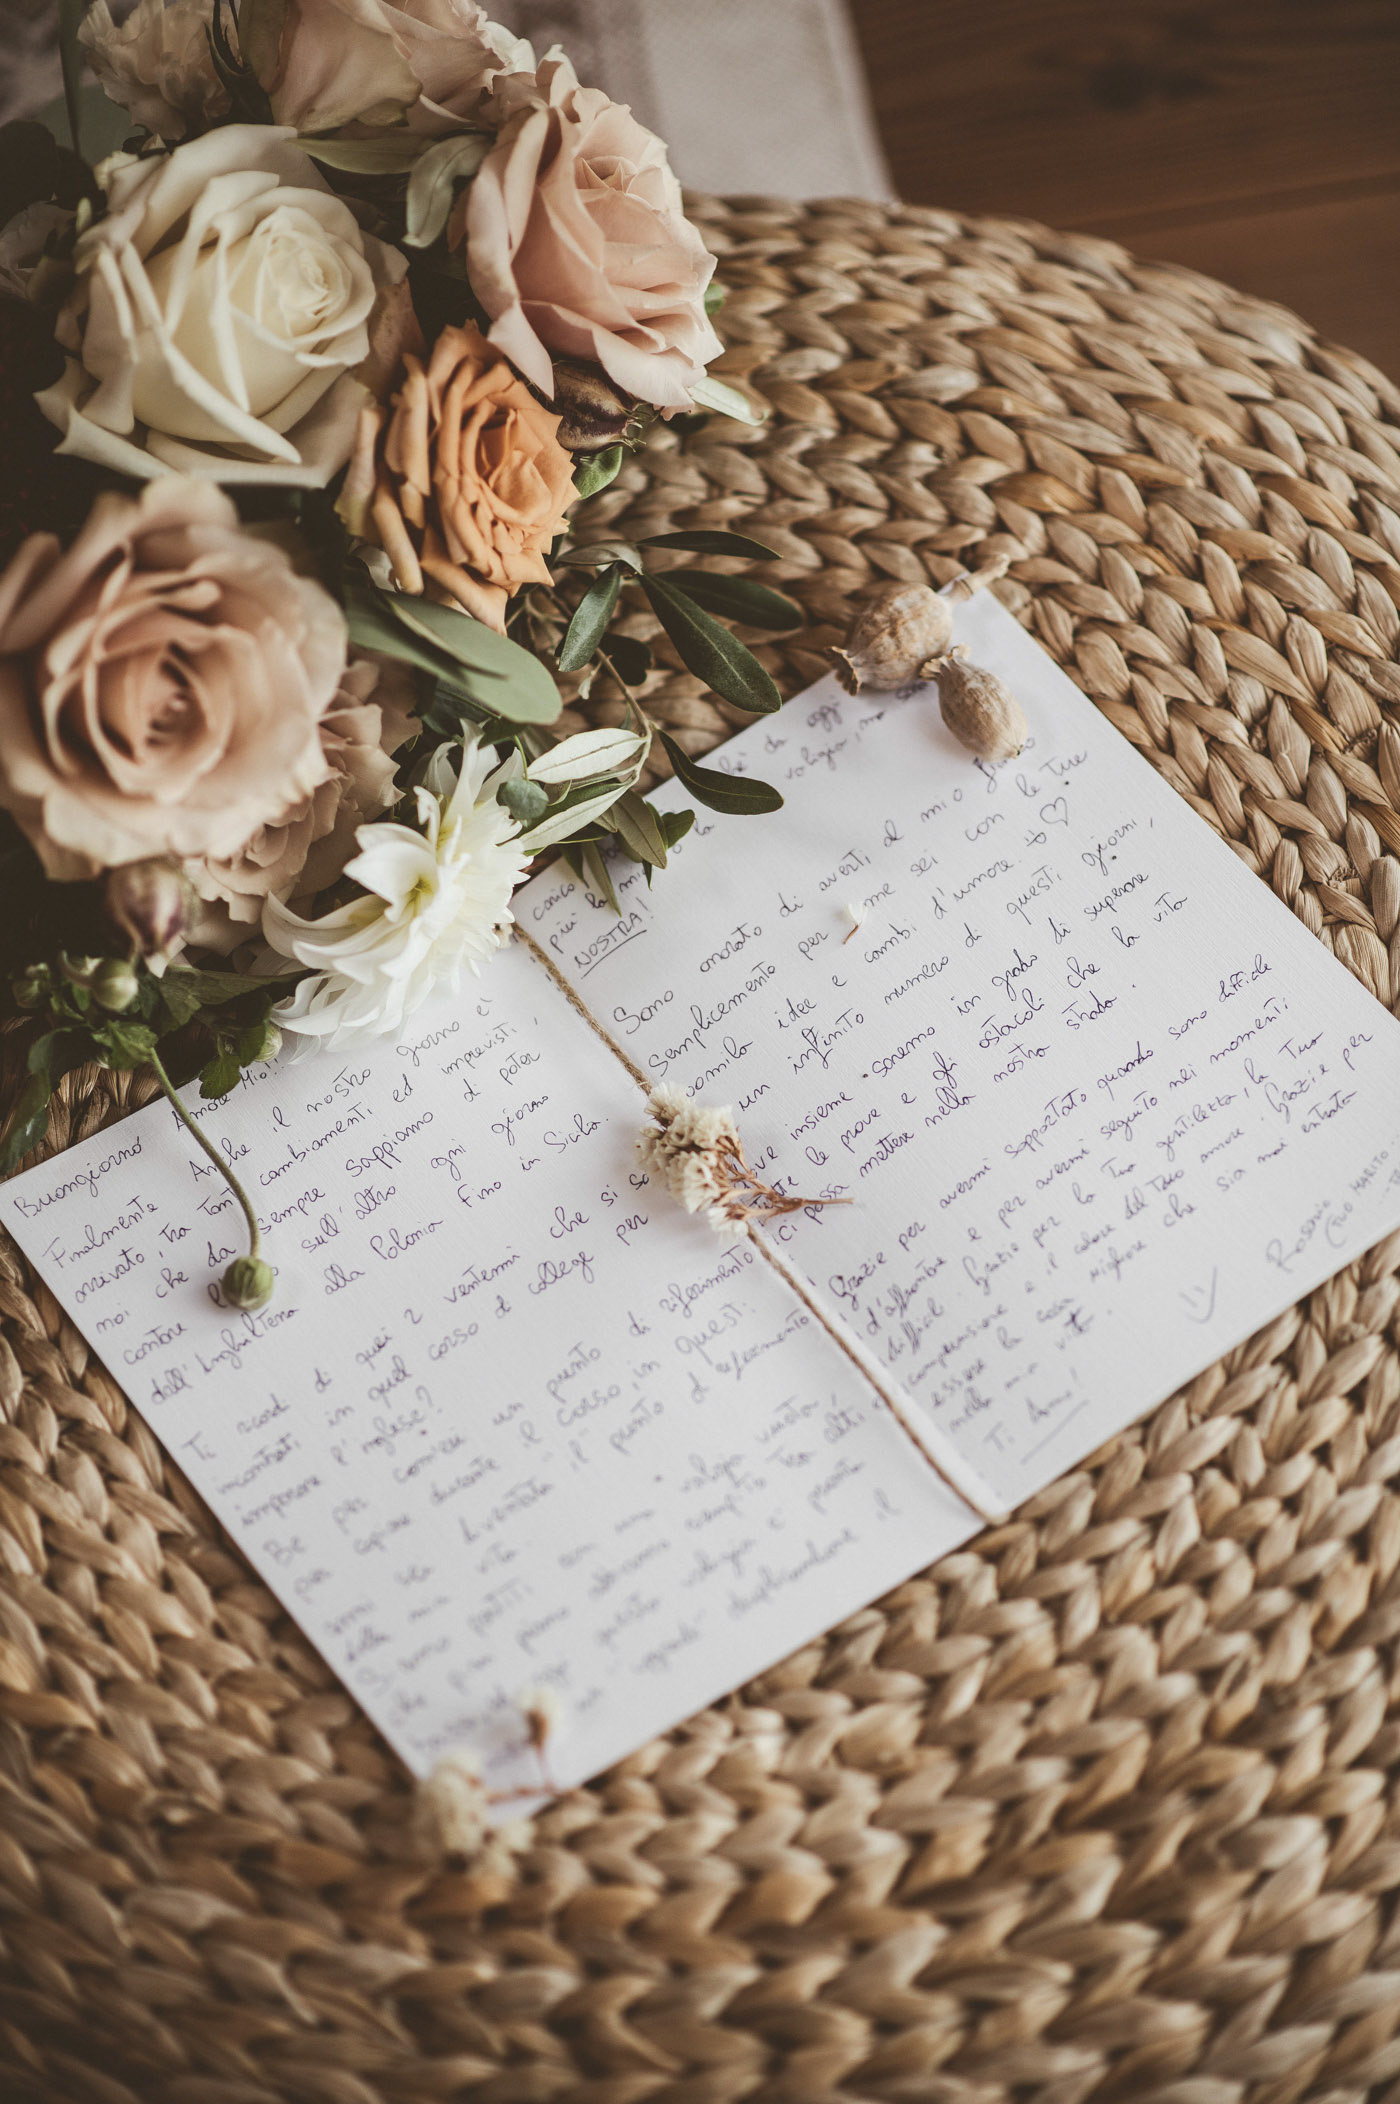 Buongiorno Amore Mio!!
Finalmente Anche il nostro giorno è
arrivato, tra tanti cambiamenti ed imprevisti,
noi che da sempre sappiamo di poter
contare sull'altro ogni giorno
dall'Inghilterra alla Polonia fino in Sicilia.
Ti ricordi di quei 2 ventenni che si so
incontrati in quel corso di college per
imparare l'inglese?
Be per cominciare un punto di riferimento
per capire durante il corso, in questi
anni sei diventata "il" punto di riferimento
della mia vita.
Si siamo partiti con una valigia vuota,
che pian piano abbiamo riempito tra alti e
oggi questa valigia è pronta
il
più la mia
NOSTRA!
da oggi
valigia, ma
la
Sono onorato di averti al mio fianco
semplicemente per come sei con le tue
idee e cambi d'umore. ♡
un infinito numero di questi giorni,
dove insieme saremo in grado di superare
tutte le prove e gli ostacoli che la vita
ci possa mettere nella nostra strada.
Grazie per avermi sopportato quando sono difficile
d'affrontare e per avermi seguito nei momenti
difficili. Grazie per la tua gentilezza, la tua
comprensione e il calore del tuo amore. Grazie per
essere la cosa migliore che sia mai entrata
nella mia vita.
Ti Amo!
Rosario
(TUO MARITO